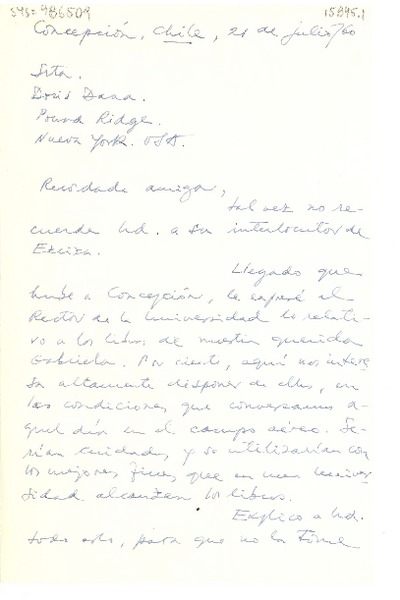 sys=986509 15895.1
Concepción, Chile, 21 de julio/60
Srta.
Doris Dana.
Pound Ridge.
Nueva York. USA.
Recordada amiga,
tal vez no re-
cuerda Ud. a su interlocutor de
Ezeiza.
Llegado que
hube a Concepción, le expresé al
Rector de la Universidad lo relati-
vo a los libros de nuestra querida
Gabriela. Por cierto, aquí nos intere-
sa altamente disponer de ellos, en
las condiciones que conversamos a-
quel día en el campo aéreo. Se-
rían cuidados, y se utilizarían con
los mejores fines que en una univer-
sidad alcanzan los libros.
Explico a Ud.
todo esto, para que no la tome